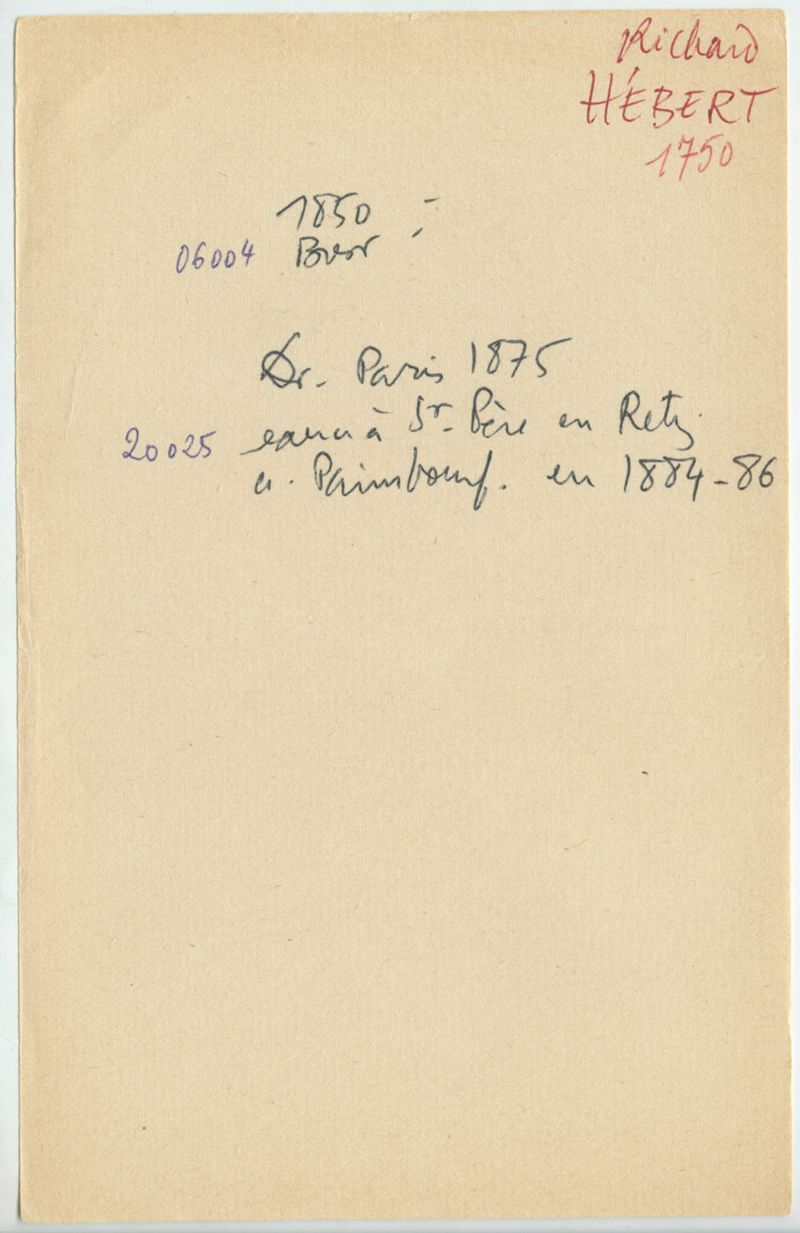 Richard
HÉBERT
1750
1850 -
06004 Brest -
Dr. Paris 1875
20025 exerce à St-Père en Retz
a. Paimboeuf. en 1884-86